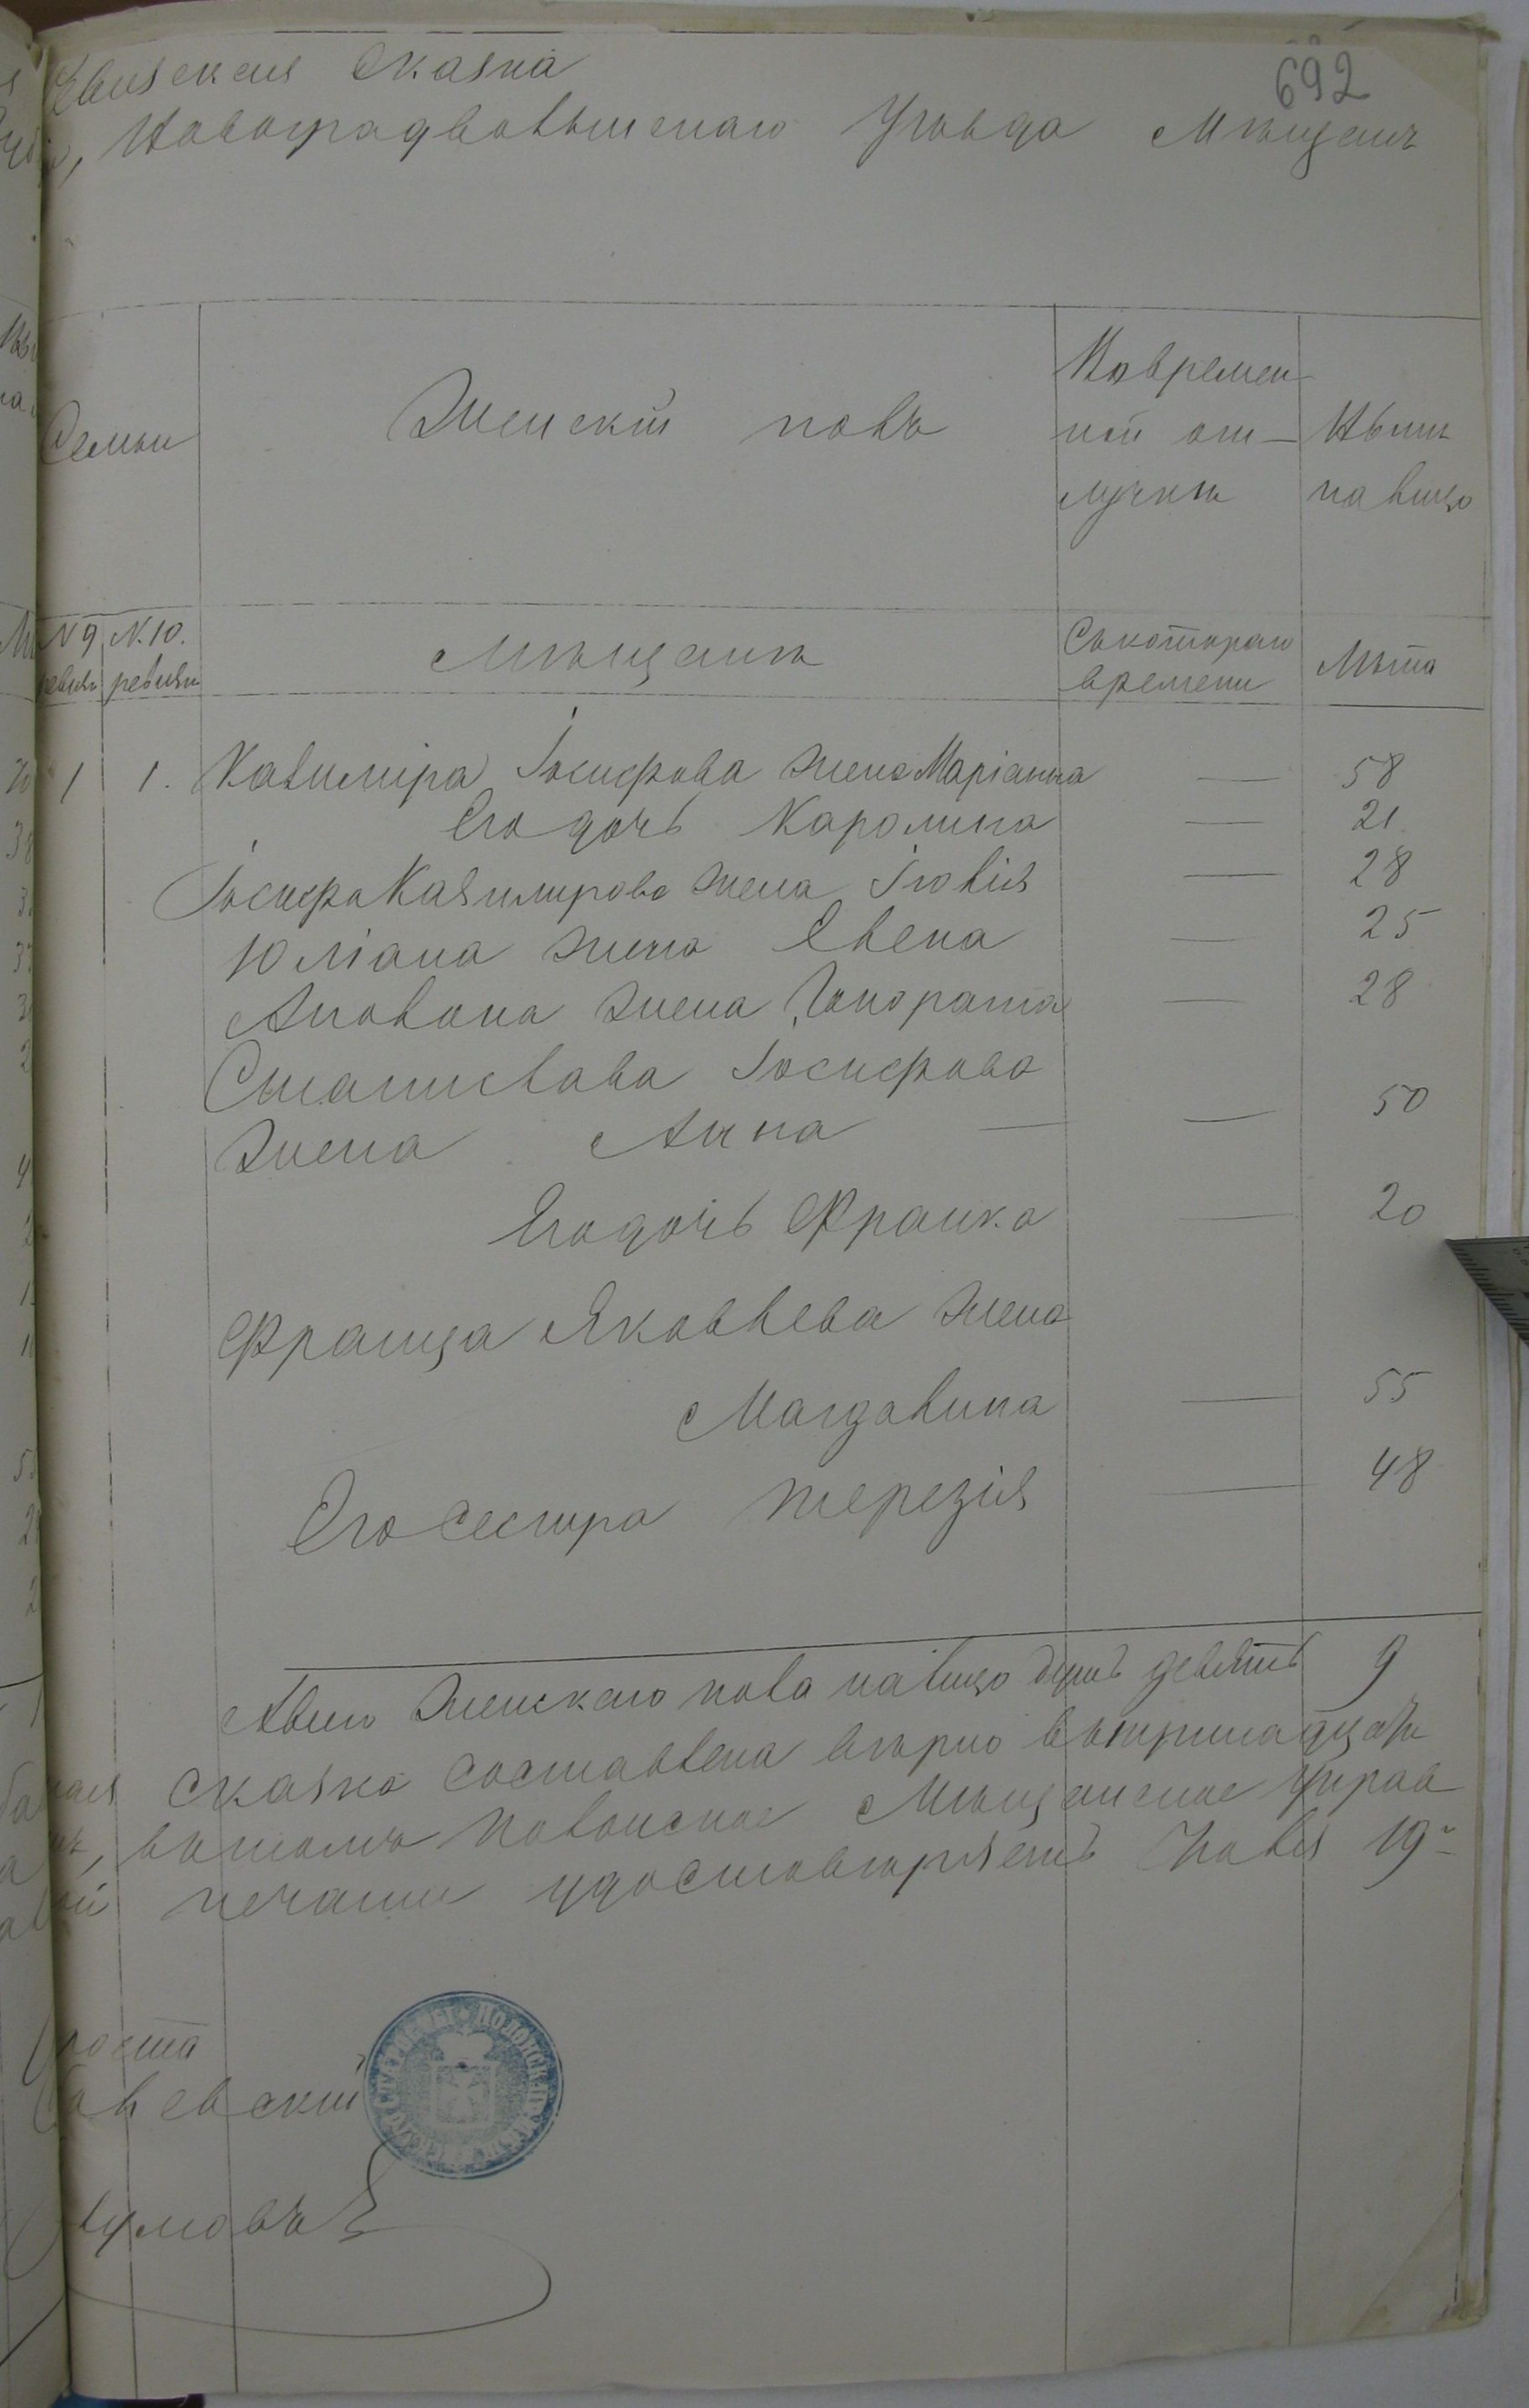 692
Ревизская Сказка
Новоградволынскаго Уѣзда Мѣщанъ
Семьи
Женскій полъ
Во времен
ной от-
лучкѣ
Нынѣ
на лицо
N 9 ревизіи
N. 10. ревизіи
Мѣщанъ
Съкотораго
времени
Лѣта
1 1. Казиміра Іосифова жена Маріанна — 58
Его дочь Каролина — 21
Іосифа Казимирова жена Іюлія — 28
Юліана жена Елена — 25
Антона жена Гонората — 28
Станислава Іосифова
жена Анна — — 50
Его дочь Франка — 20
Франца Яковлева жена
Магдалина — 55
Его сестра Терезія — 48
Итого женскаго пола на лицо душъ девять 9
сказка составлена вѣрно
въ томъ Полонское Мѣщанское Управ
печати удостовѣряетъ Іюля 19
роста
левскій